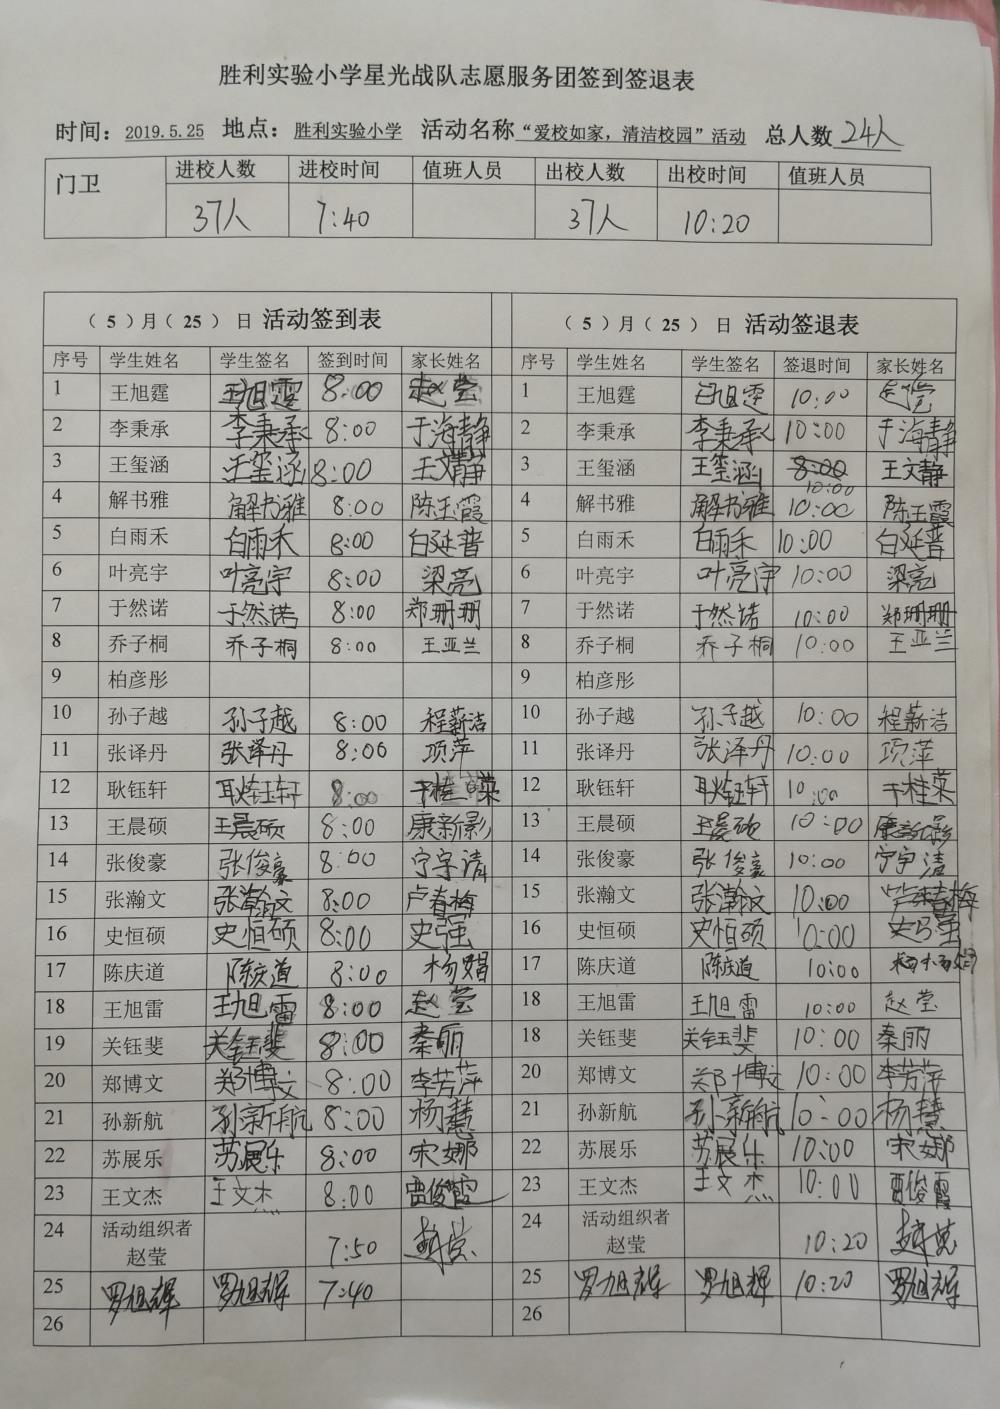 胜利实验小学星光战队志愿服务团签到签退表
时间：2019.5.25 地点：胜利实验小学 活动名称“爱校如家，清洁校园”活动 总人数 24人
门卫 进校人数 进校时间 值班人员 出校人数 出校时间 值班人员
37人 7:40 37人 10:20
（ 5 ）月（ 25 ） 日 活动签到表 （ 5 ）月（ 25 ） 日 活动签退表
序号 学生姓名 学生签名 签到时间 家长姓名 序号 学生姓名 学生签名 签退时间 家长姓名
1 王旭霆 王旭霆 8:00 赵莹 1 王旭霆 王旭霆 10:00 赵莹
2 李秉承 李秉承 8:00 于海静 2 李秉承 李秉承 10:00 于海静
3 王玺涵 王玺涵 8:00 王文静 3 王玺涵 王玺涵 8:00 10:00 王文静
4 解书雅 解书雅 8:00 陈玉霞 4 解书雅 解书雅 10:00 陈玉霞
5 白雨禾 白雨禾 8:00 白延普 5 白雨禾 白雨禾 10:00 白延普
6 叶亮宇 叶亮宇 8:00 梁亮 6 叶亮宇 叶亮宇 10:00 梁亮
7 于然诺 于然诺 8:00 郑珊珊 7 于然诺 于然诺 10:00 郑珊珊
8 乔子桐 乔子桐 8:00 王亚兰 8 乔子桐 乔子桐 10:00 王亚兰
9 柏彦彤 9 柏彦彤
10 孙子越 孙子越 8:00 程薪洁 10 孙子越 孙子越 10:00 程薪洁
11 张译丹 张译丹 8:00 项萍 11 张译丹 张译丹 10:00 项萍
12 耿钰轩 耿钰轩 8:00 于桂荣 12 耿钰轩 耿钰轩 10:00 于桂荣
13 王晨硕 王晨硕 8:00 康新影 13 王晨硕 王晨硕 10:00 康新影
14 张俊豪 张俊豪 8:00 14 张俊豪 张俊豪 10:00
15 张瀚文 张瀚文 8:00 卢春梅 15 张瀚文 张瀚文 10:00 卢春梅
16 史恒硕 史恒硕 8:00 史强 16 史恒硕 史恒硕 10:00 史强
17 陈庆道 陈庆道 8:00 杨娟 17 陈庆道 陈庆道 10:00
18 王旭雷 王旭雷 8:00 赵莹 18 王旭雷 王旭雷 10:00 赵莹
19 关钰斐 关钰斐 8:00 秦丽 18 关钰斐 关钰斐 10:00 秦丽
20 郑博文 郑博文 8:00 李芳萍 20 郑博文 郑博文 10:00 李芳萍
21 孙新航 孙新航 8:00 杨慧 21 孙新航 孙新航 10:00 杨慧
22 苏展乐 苏展乐 8:00 宋娜 22 苏展乐 苏展乐 10:00 宋娜
23 王文杰 王文杰 8:00 贾俊霞 23 王文杰 王文杰 10:00 贾俊霞
24 活动组织者 赵莹 7:50 赵莹 24 活动组织者 赵莹 10:20 赵莹
25 罗旭辉 罗旭辉 7:40 25 罗旭辉 罗旭辉 10:20 罗旭辉
26 26